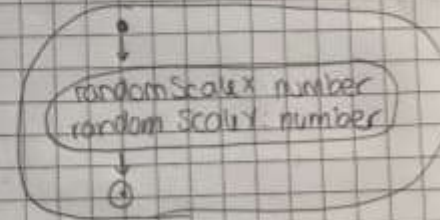 randomScaleX number
random ScaleY: number